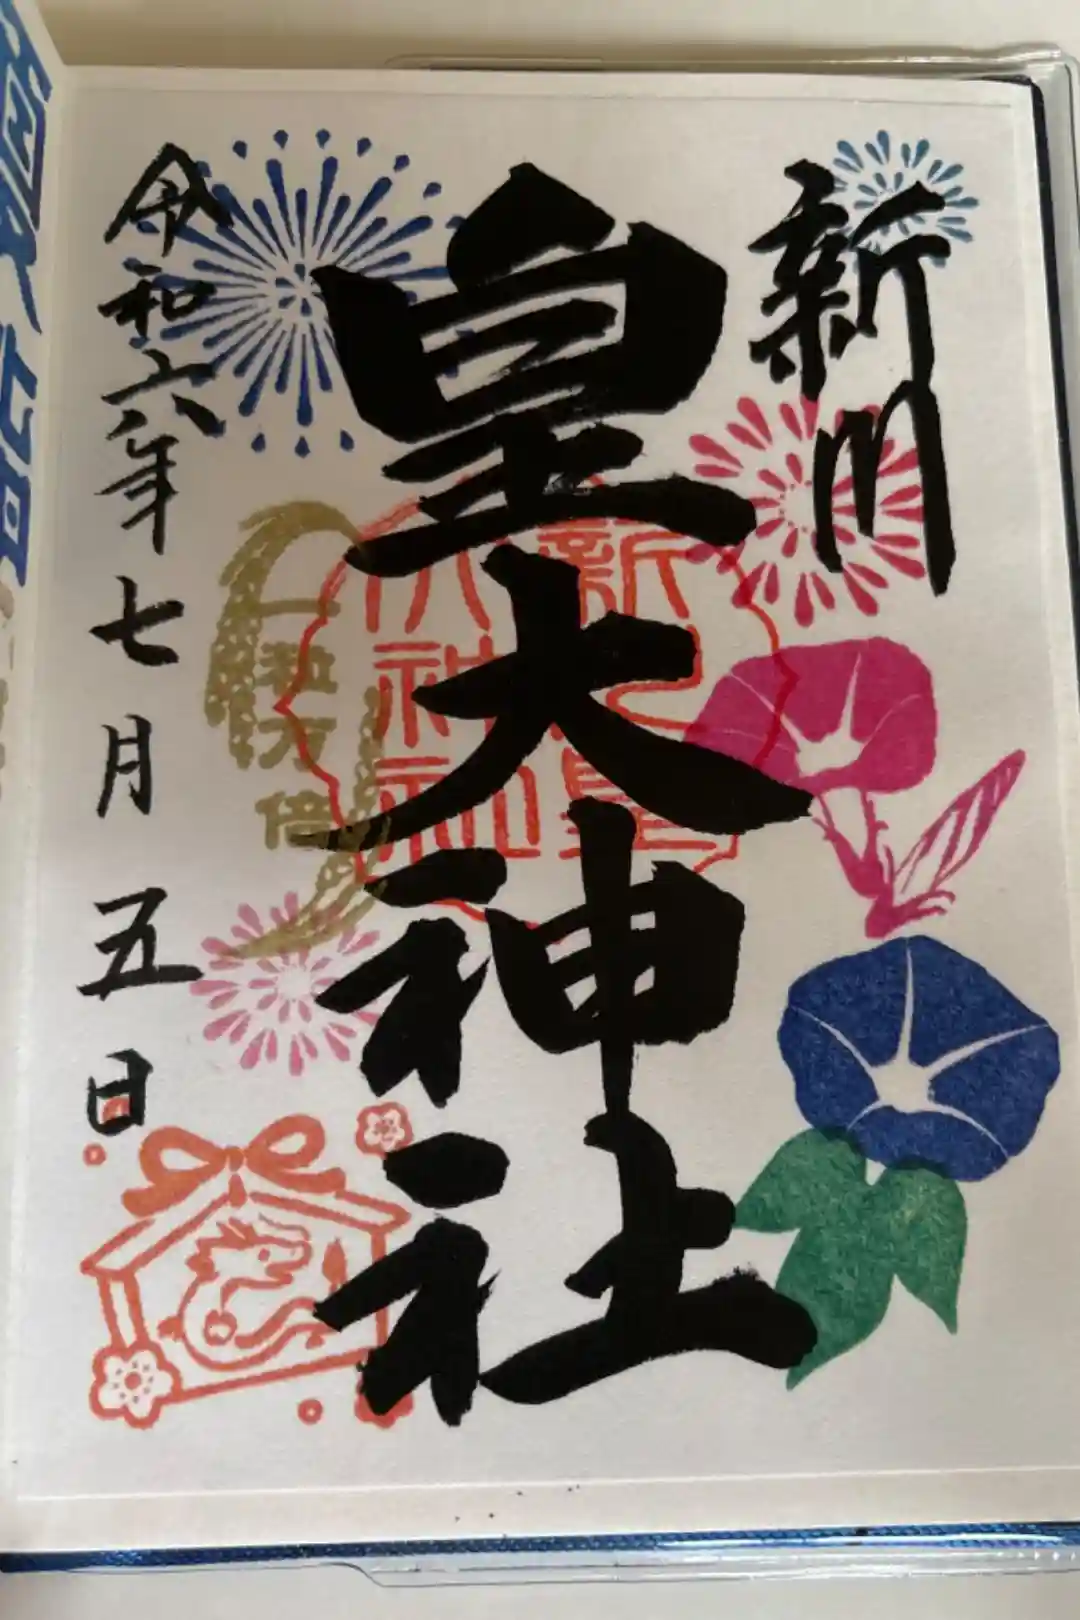 新川
皇大神社
令和六年七月五日
新川皇
大神社
一粒万倍